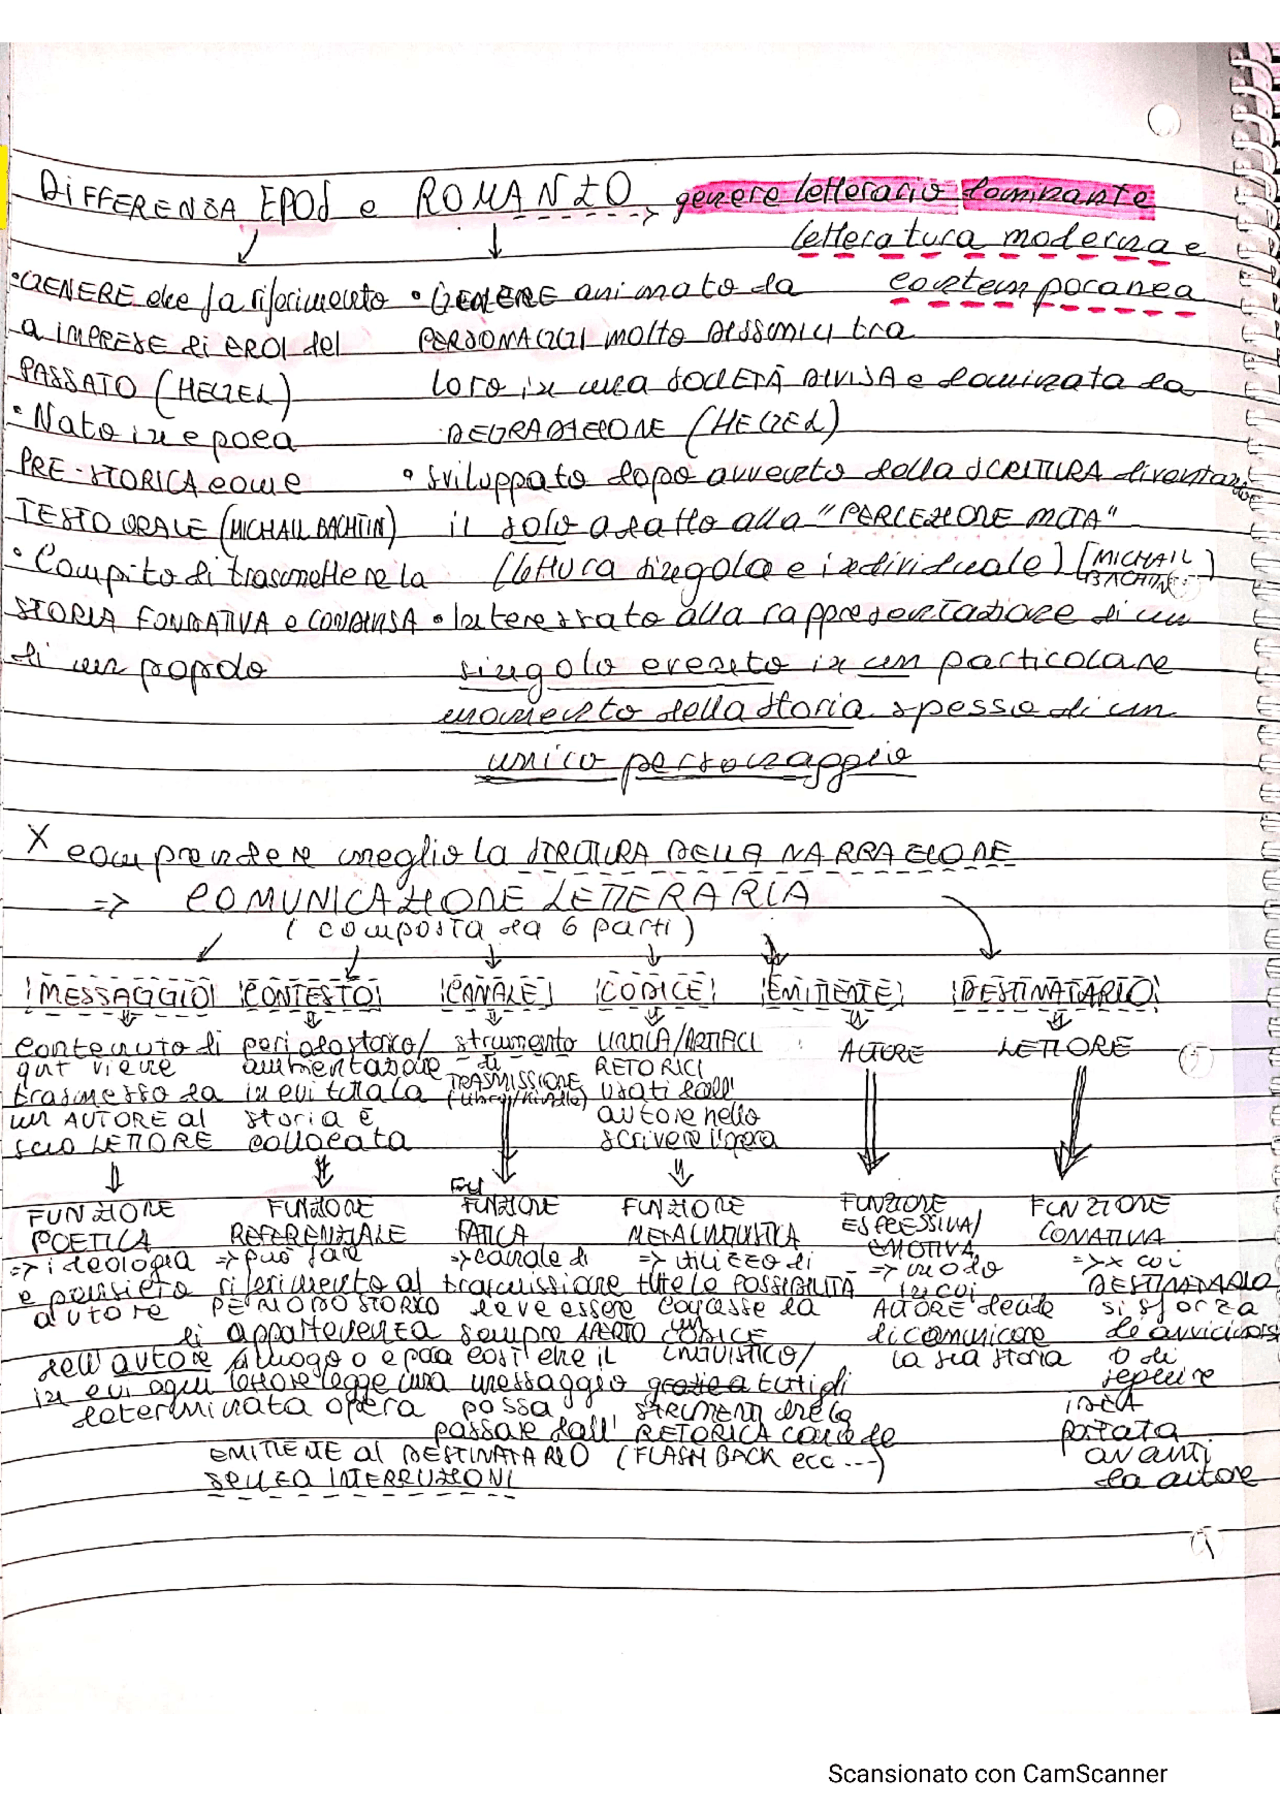 DIFFERENSA EPOS e ROMANZO -> genere letterario dominante
letteratura moderna e
contemporanea
• GENERE che fa riferimento
a IMPRESE di EROI del
PASSATO (HEGEL)
• Nato in epoca
PRE-STORICA come
TESTO ORALE (MICHAIL BACHTIN)
• Compito di trasmettere la
STORIA FONDATIVA e CONDIVISA
di un popolo
• GENERE animato da
PERSONAGGI molto DISSIMILI tra
loro in una SOCIETÀ DIVISA e dominata da
DEGRADAZIONE (HEGEL)
• sviluppato dopo avvento della SCRITTURA diventando
il solo adatto alla "PERCEZIONE MUTA"
(lettura singola e individuale) [MICHAIL
BACHTIN]
• Interessato alla rappresentazione di un
singolo evento in un particolare
momento della storia spesso di un
unico personaggio
X comprendere meglio la STRUTTURA DELLA NARRAZIONE
=> COMUNICAZIONE LETTERARIA
(composta da 6 parti)
MESSAGGIO CONTESTO CANALE CODICE EMITTENTE DESTINATARIO
contenuto di
qnt viene
trasmesso da
un AUTORE al
suo LETTORE
periodo storico/
ambientazione
in cui tutta la
storia è
collocata
strumento
di
TRASMISSIONE
(libro/riviste)
LINGUA/ARTIFICI
RETORICI
usati dall'
autore nello
scrivere l'opera
AUTORE
LETTORE
FUNZIONE
POETICA
=> ideologia
e pensiero
autore
FUNZIONE
REFERENZIALE
=> può fare
riferimento al
PERIODO STORICO
di appartenenza
dell'autore o luogo o epoca
in cui ogni lettore legge una
determinata opera
FUNZIONE
FATICA
=> canale di
trasmissione
deve essere
sempre APERTO
così che il
messaggio
possa
passare dall'
EMITTENTE al DESTINATARIO
SENZA INTERRUZIONI
FUNZIONE
METALINGUISTICA
=> utilizzo di
tutte le POSSIBILITÀ
concesse da
un
CODICE
LINGUISTICO/
grazie a tutti gli
STRUMENTI che la
RETORICA concede
(FLASH BACK ecc...)
FUNZIONE
ESPRESSIVA/
EMOTIVA
=> modo
in cui
AUTORE decide
di comunicare
la sua storia
FUNZIONE
CONATIVA
=> x cui
DESTINATARIO
si sforza
di avvicinarsi
o di
seguire
IDEA
portata
avanti
da autore
Scansionato con CamScanner